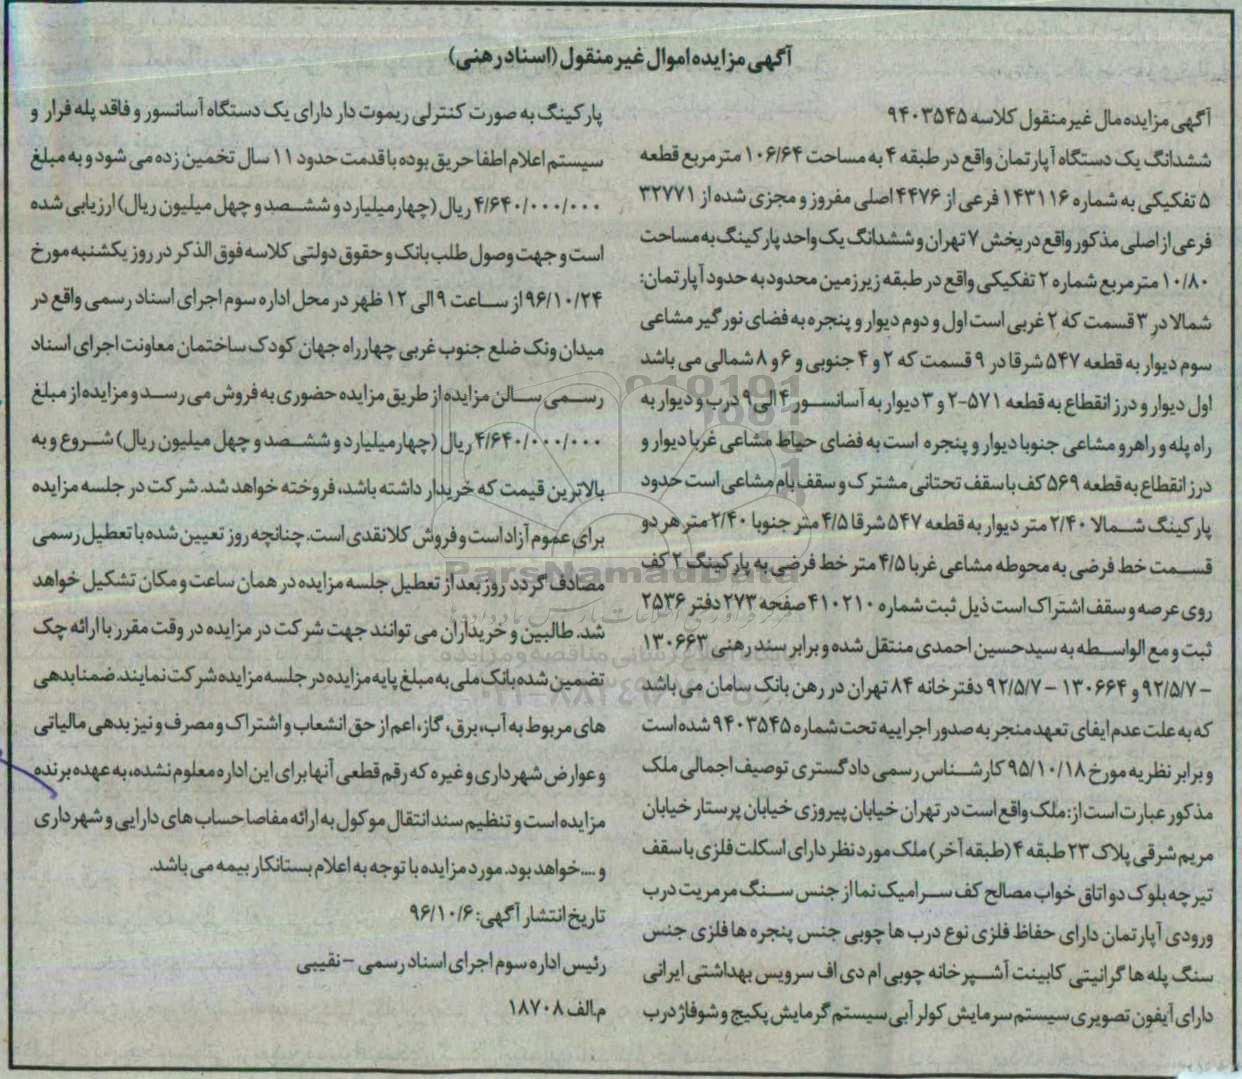 آگهی مزایده اموال غیر منقول (اسناد رهنی)
آگهی مزایده مال غیر منقول کلاسه ۹۴۰۳۵۴۵
ششدانگ یک دستگاه آپارتمان واقع در طبقه ۴ به مساحت ۱۰۶/۶۴ متر مربع قطعه
۵ تفکیکی به شماره ۱۴۳۱۱۶ فرعی از ۴۴۷۶ اصلی مفروز و مجزی شده از ۳۲۷۷۱
فرعی از اصلی مذکور واقع در بخش ۷ تهران و ششدانگ یک واحد پارکینگ به مساحت
۱۰/۸۰ متر مربع شماره ۲ تفکیکی واقع در طبقه زیرزمین محدود به حدود آپارتمان:
شمالا در ۳ قسمت که ۲ غربی است اول و دوم دیوار و پنجره به فضای نورگیر مشاعی
سوم دیوار به قطعه ۵۴۷ شرقا در ۹ قسمت که ۲ و ۴ جنوبی و ۶ و ۸ شمالی می باشد
اول دیوار و درز انقطاع به قطعه ۵۷۱-۲ و ۳ دیوار به آسانسور ۴ الی ۹ درب و دیوار به
راه پله و راهرو مشاعی جنوبا دیوار و پنجره است به فضای حیاط مشاعی غربا دیوار و
درز انقطاع به قطعه ۵۶۹ کف با سقف تحتانی مشترک و سقف بام مشاعی است حدود
پارکینگ شمالا ۲/۴۰ متر دیوار به قطعه ۵۴۷ شرقا ۴/۵ متر جنوبا ۲/۴۰ متر هر دو
قسمت خط فرضی به محوطه مشاعی غربا ۴/۵ متر خط فرضی به پارکینگ ۲ کف
روی عرصه و سقف اشتراک است ذیل ثبت شماره ۴۱۰۲۱۰ صفحه ۲۷۳ دفتر ۲۵۳۶
ثبت و مع الواسطه به سید حسین احمدی منتقل شده و برابر سند رهنی ۱۳۰۶۶۳
– ۹۲/۵/۷ و ۱۳۰۶۶۴ – ۹۲/۵/۷ دفترخانه ۸۴ تهران در رهن بانک سامان می باشد
که به علت عدم ایفای تعهد منجر به صدور اجراییه تحت شماره ۹۴۰۳۵۴۵ شده است
و برابر نظریه مورخ ۹۵/۱۰/۱۸ کارشناس رسمی دادگستری توصیف اجمالی ملک
مذکور عبارت است از: ملک واقع است در تهران خیابان پیروزی خیابان پرستار خیابان
مریم شرقی پلاک ۲۳ طبقه ۴ (طبقه آخر) ملک مورد نظر دارای اسکلت فلزی با سقف
تیرچه بلوک دو اتاق خواب مصالح کف سرامیک نما از جنس سنگ مرمریت درب
ورودی آپارتمان دارای حفاظ فلزی نوع درب ها چوبی جنس پنجره ها فلزی جنس
سنگ پله ها گرانیتی کابینت آشپرخانه چوبی ام دی اف سرویس بهداشتی ایرانی
دارای آیفون تصویری سیستم سرمایش کولر آبی سیستم گرمایش پکیج و شوفاژ درب
پارکینگ به صورت کنترلی ریموت دار دارای یک دستگاه آسانسور و فاقد پله فرار و
سیستم اعلام اطفا حریق بوده با قدمت حدود ۱۱ سال تخمین زده می شود و به مبلغ
۴/۶۴۰/۰۰۰/۰۰۰ ریال (چهار میلیارد و ششصد و چهل میلیون ریال) ارزیابی شده
است و جهت وصول طلب بانک و حقوق دولتی کلاسه فوق الذکر در روز یکشنبه مورخ
۹۶/۱۰/۲۴ از ساعت ۹ الی ۱۲ ظهر در محل اداره سوم اجرای اسناد رسمی واقع در
میدان ونک ضلع جنوب غربی چهارراه جهان کودک ساختمان معاونت اجرای اسناد
رسمی سالن مزایده از طریق مزایده حضوری به فروش می رسد و مزایده از مبلغ
۴/۶۴۰/۰۰۰/۰۰۰ ریال (چهار میلیارد و ششصد و چهل میلیون ریال) شروع و به
بالاترین قیمت که خریدار داشته باشد، فروخته خواهد شد. شرکت در جلسه مزایده
برای عموم آزاد است و فروش کلا نقدی است. چنانچه روز تعیین شده با تعطیل رسمی
مصادف گردد روز بعد از تعطیل جلسه مزایده در همان ساعت و مکان تشکیل خواهد
شد. طالبین و خریداران می توانند جهت شرکت در مزایده در وقت مقرر با ارائه چک
تضمین شده بانک ملی به مبلغ پایه مزایده در جلسه مزایده شرکت نمایند. ضمنا بدهی
های مربوط به آب، برق، گاز، اعم از حق انشعاب و اشتراک و مصرف و نیز بدهی مالیاتی
و عوارض شهرداری و غیره که رقم قطعی آنها برای این اداره معلوم نشده، به عهده برنده
مزایده است و تنظیم سند انتقال موکول به ارائه مفاصا حساب های دارایی و شهرداری
و ....خواهد بود. مورد مزایده با توجه به اعلام بستانکار بیمه می باشد.
تاریخ انتشار آگهی: ۹۶/۱۰/۶
رئیس اداره سوم اجرای اسناد رسمی – نقیبی
م.الف ۱۸۷۰۸
ParsNamadData